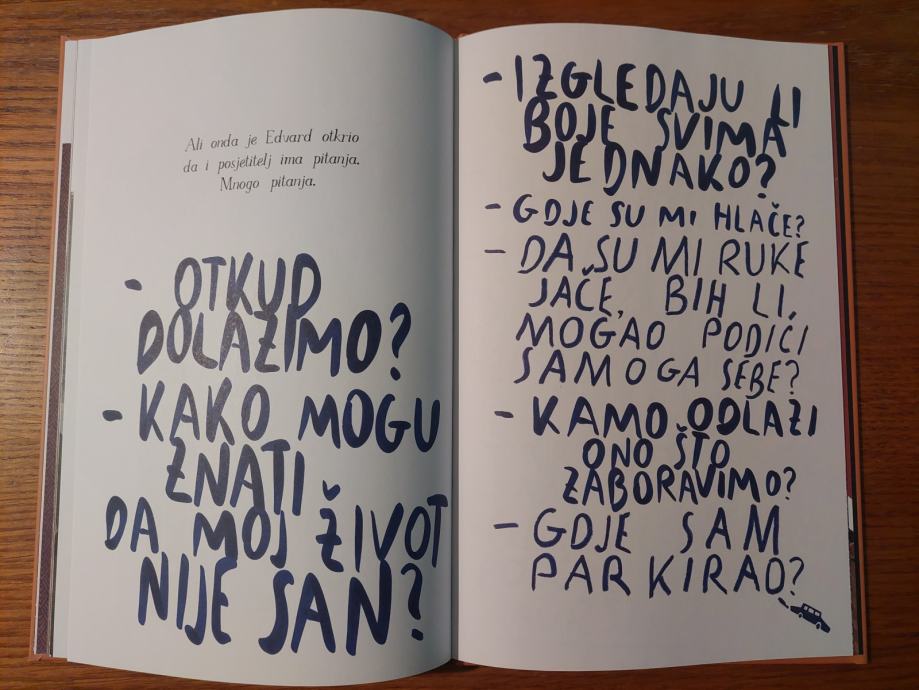 Ali onda je Edvard otkrio
da i posjetitelj ima pitanja.
Mnogo pitanja.
- OTKUD
DOLAZIMO?
- KAKO MOGU
ZNATI
DA MOJ ŽIVOT
NIJE SAN?
- IZGLEDAJU LI
BOJE SVIMA
JEDNAKO?
- GDJE SU MI HLAČE?
- DA SU MI RUKE
JAČE, BIH LI
MOGAO PODIĆI
SAMOGA SEBE?
- KAMO ODLAZI
ONO ŠTO
ZABORAVIMO?
- GDJE SAM
PARKIRAO?